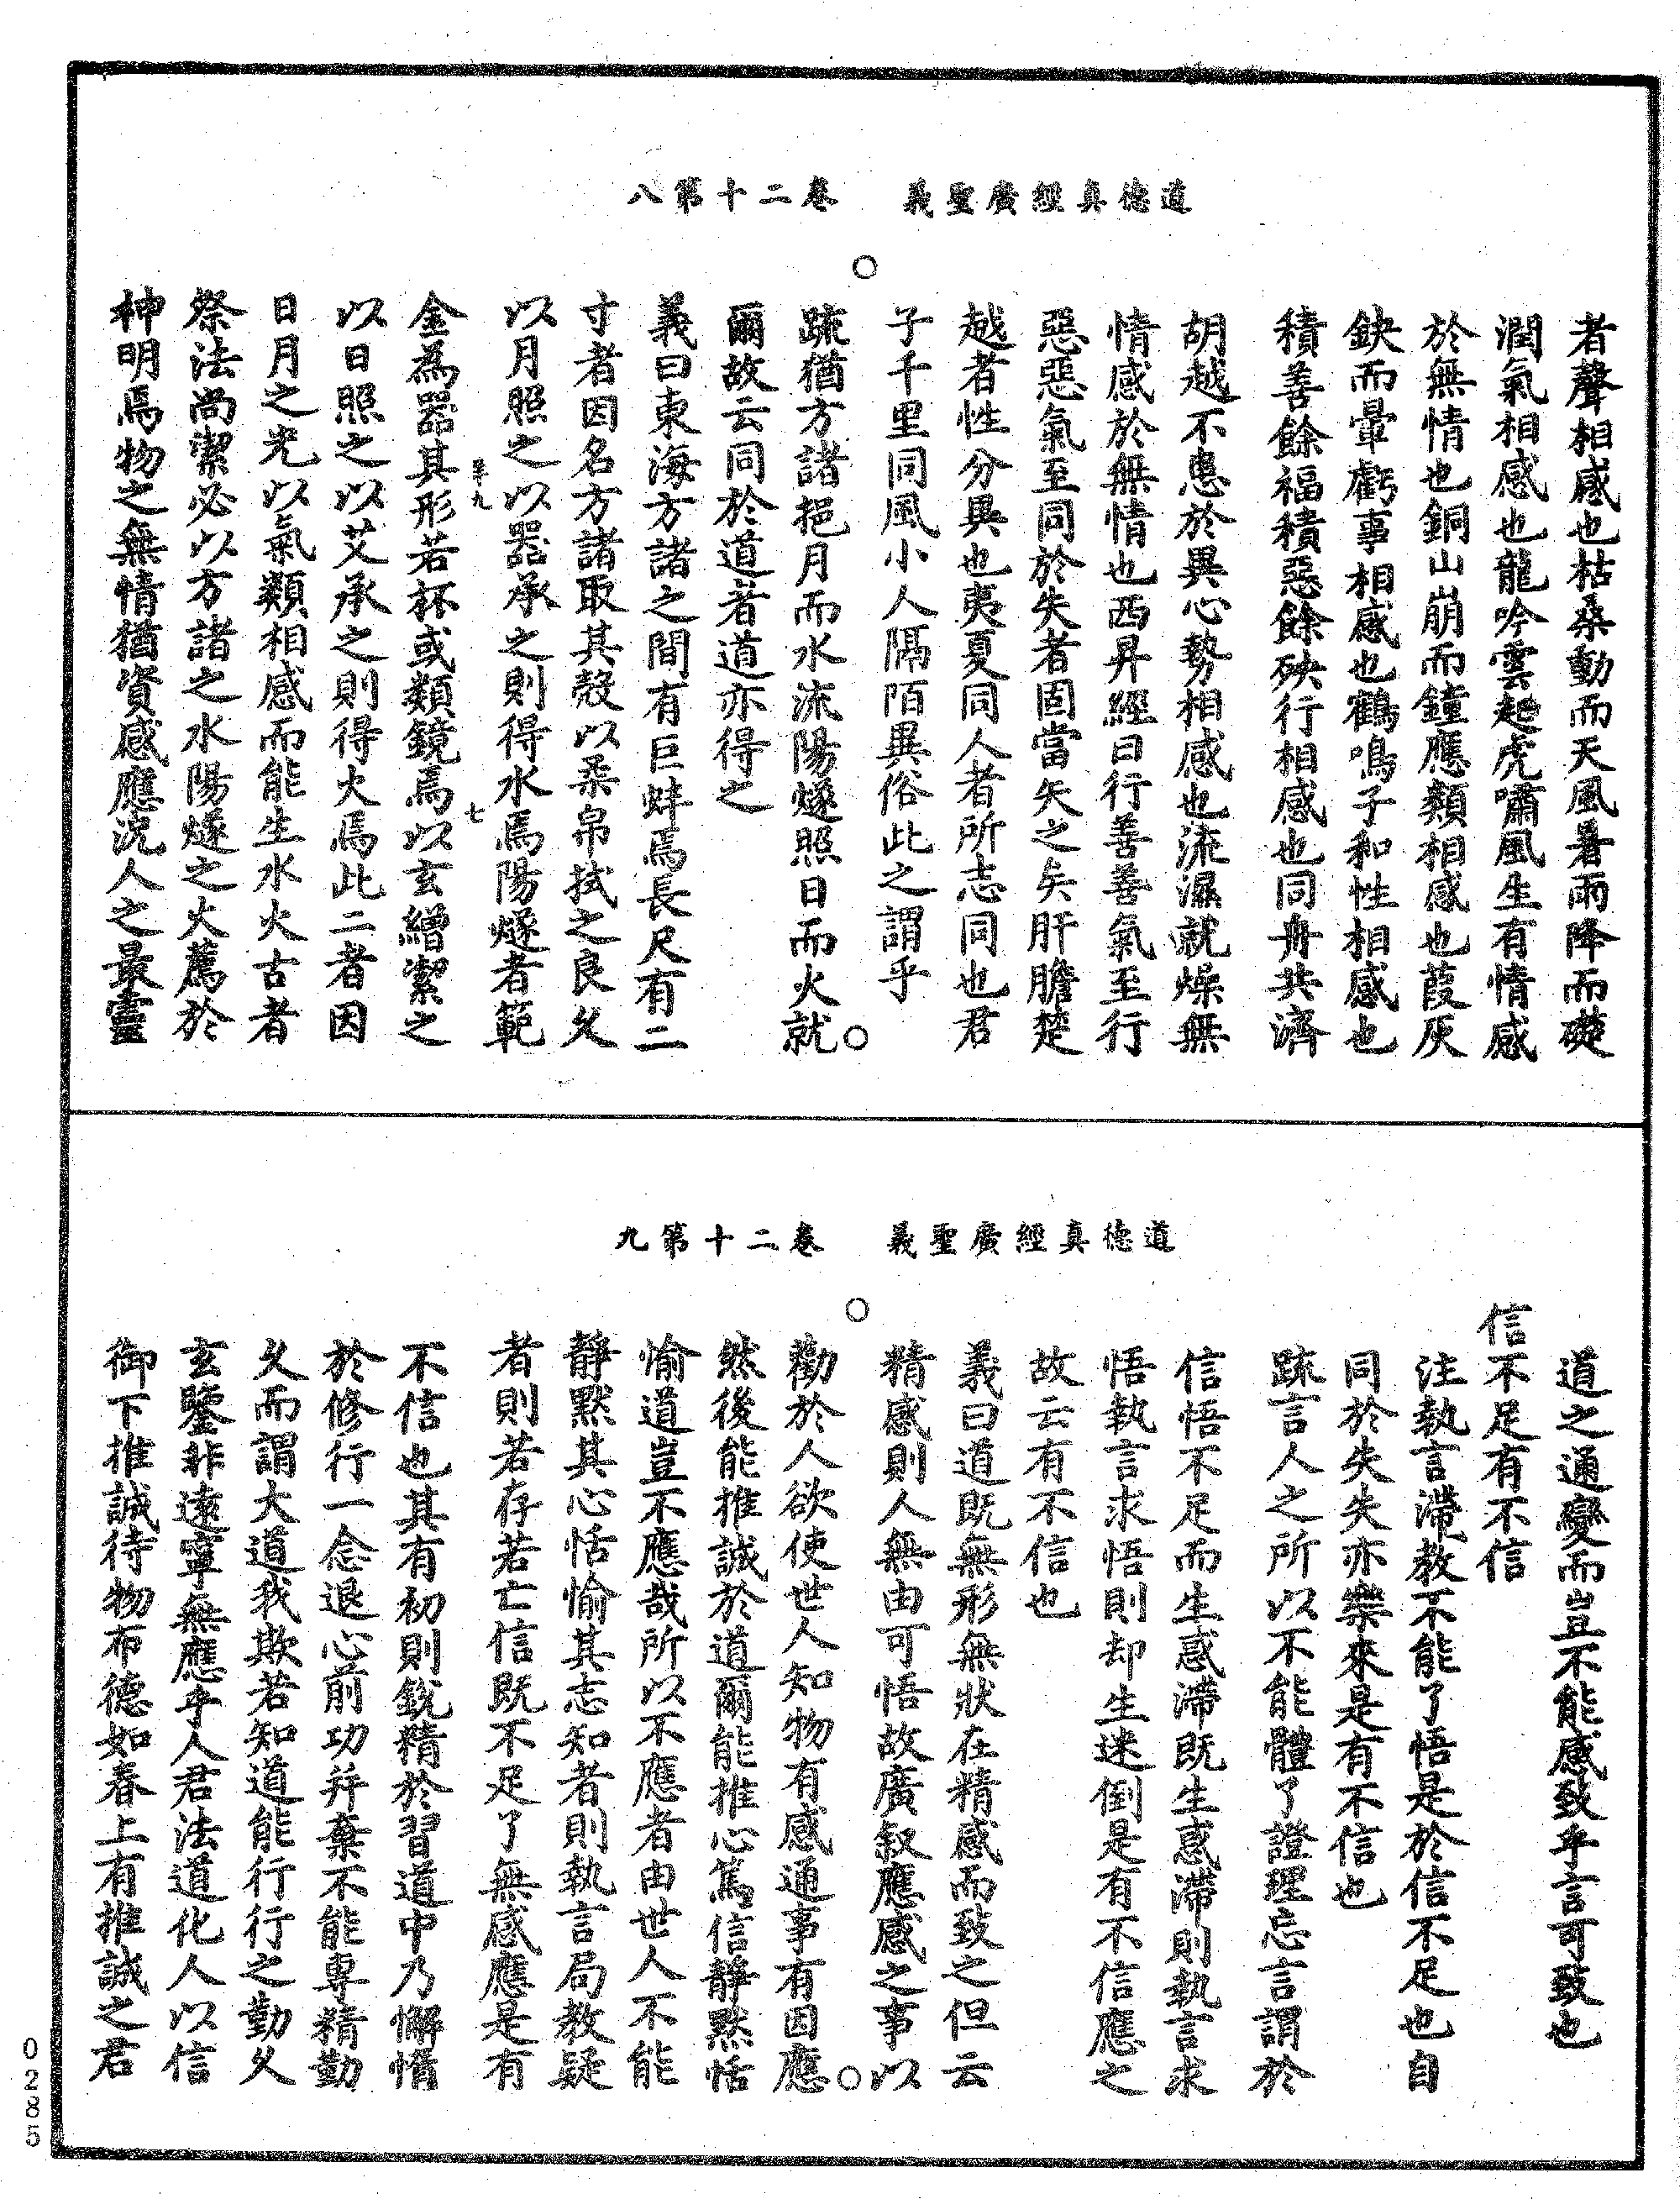 道德真經廣聖義　卷二十第八
者聲相感也枯桑動而天風暑雨降而礎
潤氣相感也龍吟雲起虎嘯風生有情感
於無情也銅山崩而鐘應類相感也葭灰
鈌而暈虧事相感也鶴鳴子和性相感也
積善餘福積惡餘殃行相感也同舟共濟
胡越不患於異心勢相感也流濕就燥無
情感於無情也西昇經曰行善善氣至行
惡惡氣至同於失者固當失之矣肝膽楚
越者性分異也夷夏同人者所志同也君
子千里同風小人隔陌異俗此之謂乎
疏猶方諸挹月而水流陽燧照日而火就
爾故云同於道者道亦得之
義曰東海方諸之間有巨蚌焉長尺有二
寸者因名方諸取其殼以柔帛拭之良久
以月照之以器承之則得水焉陽燧者範
金為器其形若杯或類鏡焉以玄繒潔之
以日照之以艾承之則得火焉此二者因
日月之光以氣類相感而能生水火古者
祭法尚潔必以方諸之水陽燧之火薦於
神明焉物之無情猶資感應況人之最靈
道德真經廣聖義　卷二十第九
道之通變而豈不能感致乎言可致也
信不足有不信
注執言滯教不能了悟是於信不足也自
同於失失亦樂來是有不信也
疏言人之所以不能體了證理忘言謂於
信悟不足而生惑滯既生惑滯則執言求
悟執言求悟則却生迷倒是有不信應之
故云有不信也
義曰道既無形無狀在精感而致之但云
精感則人無由可悟故廣叙應感之事以
勸於人欲使世人知物有感通事有因應
然後能推誠於道爾能推心篤信靜默恬
愉道豈不應哉所以不應者由世人不能
靜默其心恬愉其志知者則執言局教疑
者則若存若亡信既不足了無感應是有
不信也其有初則銳精於習道中乃懈惰
於修行一念退心前功并棄不能專精勤
久而謂大道我欺若知道能行行之勤久
玄鑒非遠寧無應乎人君法道化人以信
御下推誠待物布德如春上有推誠之君
0285